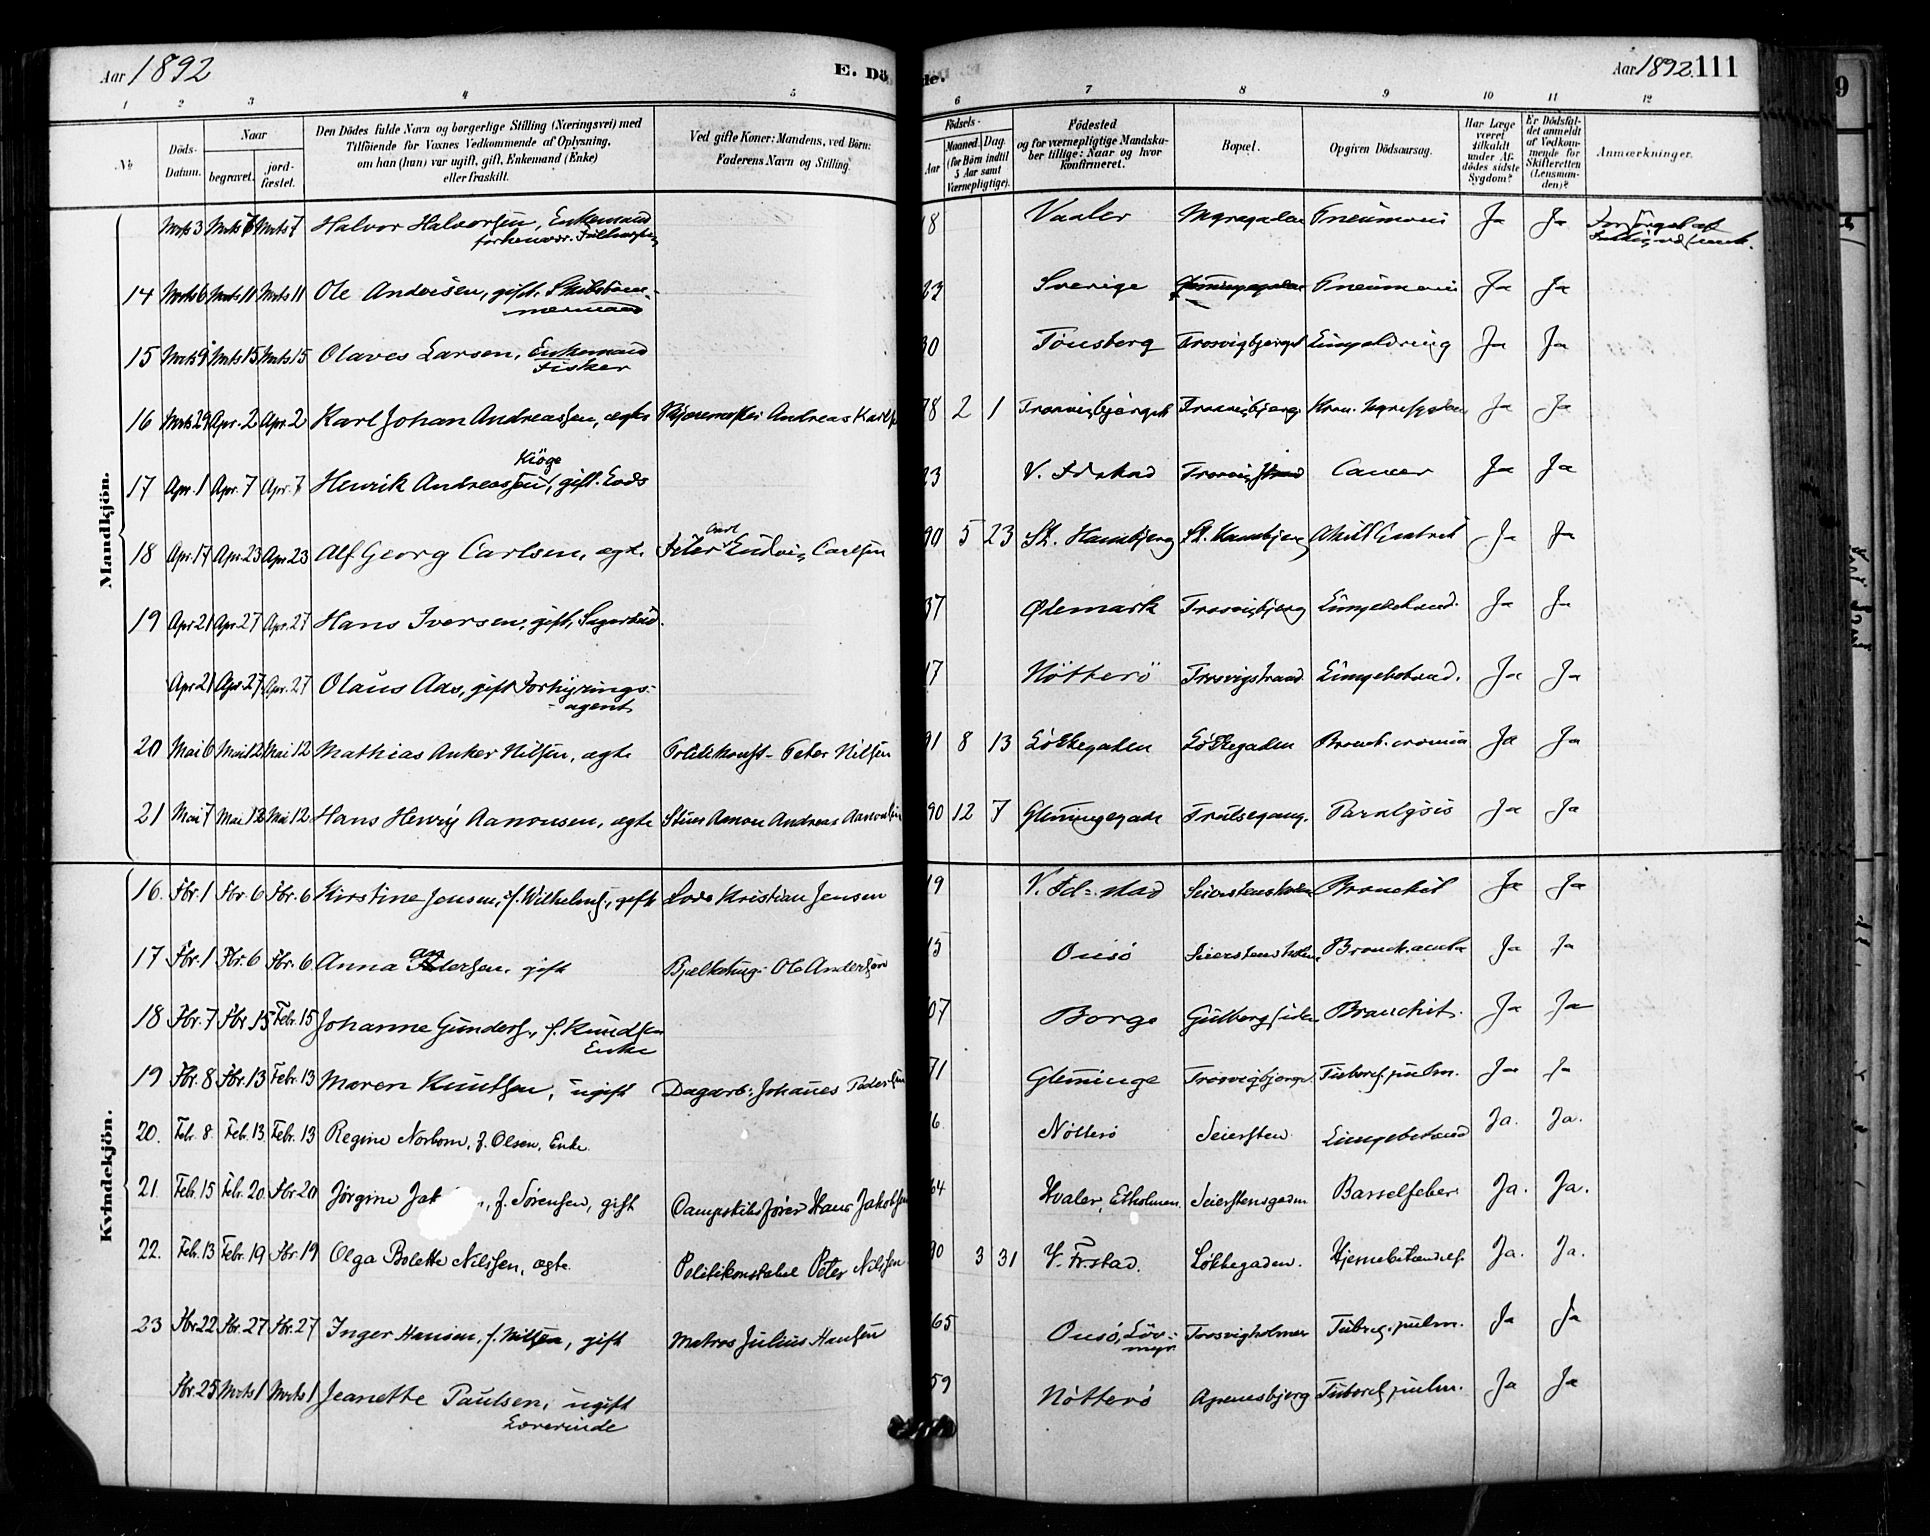 Aar 1892
E. Dö
de.
Aar 1892. 111
1 2 3 4 5 6 7 8 9 10 11 12
No
Döds-Datum.
Naar
begravet.
jord-fæstet.
Den Dödes fulde Navn og borgerlige Stilling (Næringsvei) med
Tilföiende for Voxnes Vedkommende af Oplysning,
om han (hun) var ugift, gift, Enkemand (Enke)
eller fraskilt.
Ved gifte Koner: Mandens, ved Börn:
Faderens Navn og Stilling.
Födsels-
Aar
Maaned. Dag.
(for Börn indtil 5 Aar samt Værnepligtige).
Födested
og for værnepligtige Mandskaber tillige: Naar og hvor konfirmeret.
Bopæl.
Opgiven Dödsaarsag.
Har Læge været tilkaldt under Afdödes sidste Sygdom?
Er Dödsfaldet anmeldt af Vedkommende for Skifteretten (Lensmanden)?
Anmærkninger.
Mandkjön.
Mrts 3 Mrts 7 Mrts 7 Halvor Halvorsen, Enkemand 18 Vaaler Pneumoni Ja Ja
14 Mrts 6 Mrts 11 Mrts 11 Ole Andersen, gift, 23 Sverige Pneumoni Ja Ja
15 Mrts 9 Mrts 15 Mrts 15 Olaves Larsen, Enkemand 30 Tönsberg Trosvigbjerget Ja Ja
Fisker
16 Mrts 29 Apr. 2 Apr. 2 Karl Johan Andreassen, ægte Andreas Karls 78 2 1 Trosvigbjerget Trosvigbjerg Ja Ja
17 Apr. 1 Apr. 7 Apr. 7 Henrik Andreassen Kiöge, gift. Lods 23 V. Fdstad Trosvigstrand Cancer Ja Ja
18 Apr. 17 Apr. 23 Apr. 23 Alf Georg Carlsen, ægte Carl Ludvig Carlsen 90 5 23 St. Hansbjerg St. Hansbjerg Ja Ja
19 Apr. 21 Apr. 27 Apr. 27 Hans Iversen, gift, 37 Ødemark Trosvigbjerg Lungebetænd. Ja Ja
Apr. 21 Apr. 27 Apr. 27 Olaus Aas, gift Forhyrings- 17 Nötterö Trosvigstrand Lungebetænd. Ja Ja
agent
20 Mai 6 Mai 12 Mai 12 Mathias Anker Nilsen, ægte Politikonst. Peter Nilsen 91 8 13 Lökkegaden Lökkegaden Ja Ja
21 Mai 7 Mai 12 Mai 12 Hans Henry Aanonsen, ægte Andreas Aanonsen 90 12 7 Glemmingegade Paralysis Ja Ja
Kvindekjön.
16. Fbr. 1 Fbr. 6 Fbr. 6 Kirstine Jensen, f. Wilhelms., gift Lods Kristian Jensen 19 V. Fd=stad Bronchit Ja Ja
17 Fbr. 1 Fbr. 6 Fbr. 6 Anna Andersen, gift Ole Andersen 15 Onsö Bronch. acuta Ja Ja
18 Fbr. 7 Fbr 15 Febr. 15 Johanne Gunders., f. Knudsen 07 Borge Bronchit. Ja Ja
Enke
19 Fbr. 8 Fbr. 13 Febr. 13 Maren Knutsen, ugift Dagarb. Johannes Pedersen 71 Glemminge Trosvigbjerget Tubercl. pulm. Ja Ja
20. Febr. 8. Febr. 13 Febr. 13 Regine Norbom, f. Olsen, Enke. 16. Nötterö Seiersten Lungebetænd Ja. Ja.
21. Febr. 15 Febr. 20. Fbr. 20 Jörgine Jak n, f. Sörensen, gift Dampskibsförer Hans Jakobsen 64 Hvaler, Seierstensgaden Barselfeber Ja. Ja.
22. Febr. 13 Febr. 19 Fbr. 19 Olga Bolette Nilssen, ægte. Politikonstabel Peter Nilssen 90 3 31 V. Fr.stad. Lökkegaden. Hjernebetændels. Ja. Ja.
23 Fbr. 22 Fbr. 27 Fbr. 27 Inger Hansen, f. Nilsen, gift Matros Julius Hansen 65 Onsö, Trosvigholmen Tubercl. pulm. Ja Ja
Fbr. 25 Mrts 1 Mrts 1 Jeanette Paulsen, ugift 59 Nötterö Apenesbjerg Tubercl. pulm. Ja Ja
Lærerinde
9